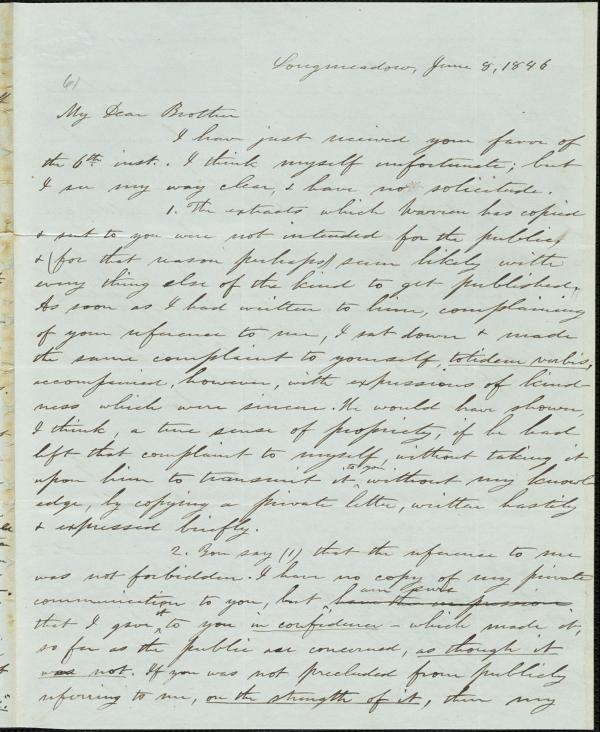 Longmeadow, June 8, 1846
61
My Dear Brother
I have just received your favor of
the 6th inst. I think myself unfortunate; but
I see my way clear, & have no solicitude.
1. The extracts which Warren has copied
& sent to you were not intended for the public,
& (for that reason perhaps) seem likely with
every thing else of the kind to get published.
As soon as I had written to him, complaining
of your reference to me, I sat down & made
the same complaint to yourself, totidem verbis,
accompanied, however, with expressions of kind-
ness which were sincere. He would have shown,
I think, a true sense of propriety, if he had
left that complaint to myself, without taking it
upon him to transmit it to you, without my knowl-
edge, by copying a private letter, written hastily
& expressed briefly.
2. You say (1) that the reference to me
was not forbidden. I have no copy of my private
communication to you, but have the impression am sure
that I gave it to you in confidence - which made it,
so far as the public are concerned, as though it
was not. If you was not precluded from publicly
referring to me, on the strength of it, then my